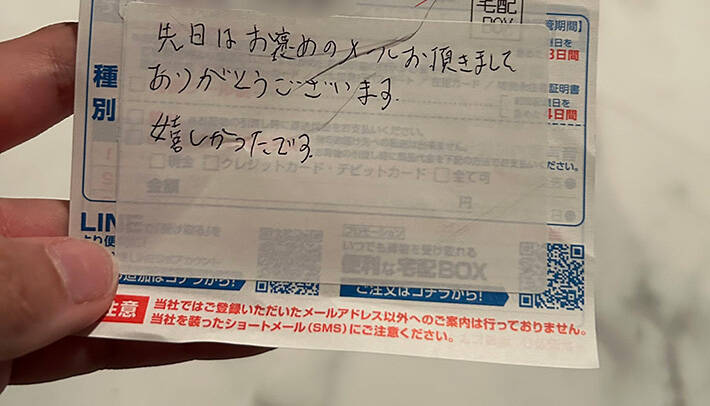 宅配
BOX
先日はお褒めのメールお頂きまして
ありがとうございます。
嬉しかったです。
種
別
管期間】
3日間
証明書
4日間
ださい。
現金 クレジットカード・デビットカード 全て可
金額
円
LINE
より便
いつでも荷物を受け取れる
便利な宅配BOX
の追加はコチラから!
ご注文はコチラから!
注意
当社ではご登録いただいたメールアドレス以外へのご案内は行っておりません。
当社を装ったショートメール(SMS)にご注意ください。